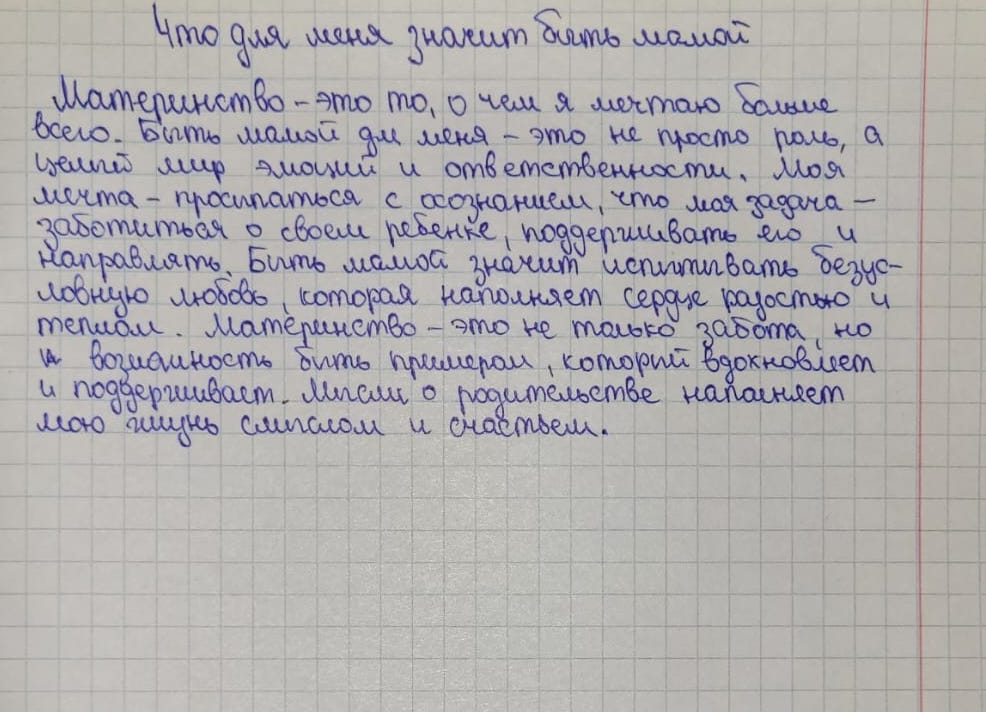 Что для меня значит быть мамой
Материнство – это то, о чем я мечтаю больше
всего. Быть мамой для меня – это не просто роль, а
целый мир эмоций и ответственности. Моя
мечта – просыпаться с осознанием, что моя задача –
заботиться о своем ребенке, поддерживать его и
направлять. Быть мамой значит испытывать безус-
ловную любовь, которая наполняет сердце радостью и
теплом. Материнство – это не только забота, но
и возможность быть примером, который вдохновляет
и поддерживает. Мысли о родительстве наполняет
мою жизнь смыслом и счастьем.